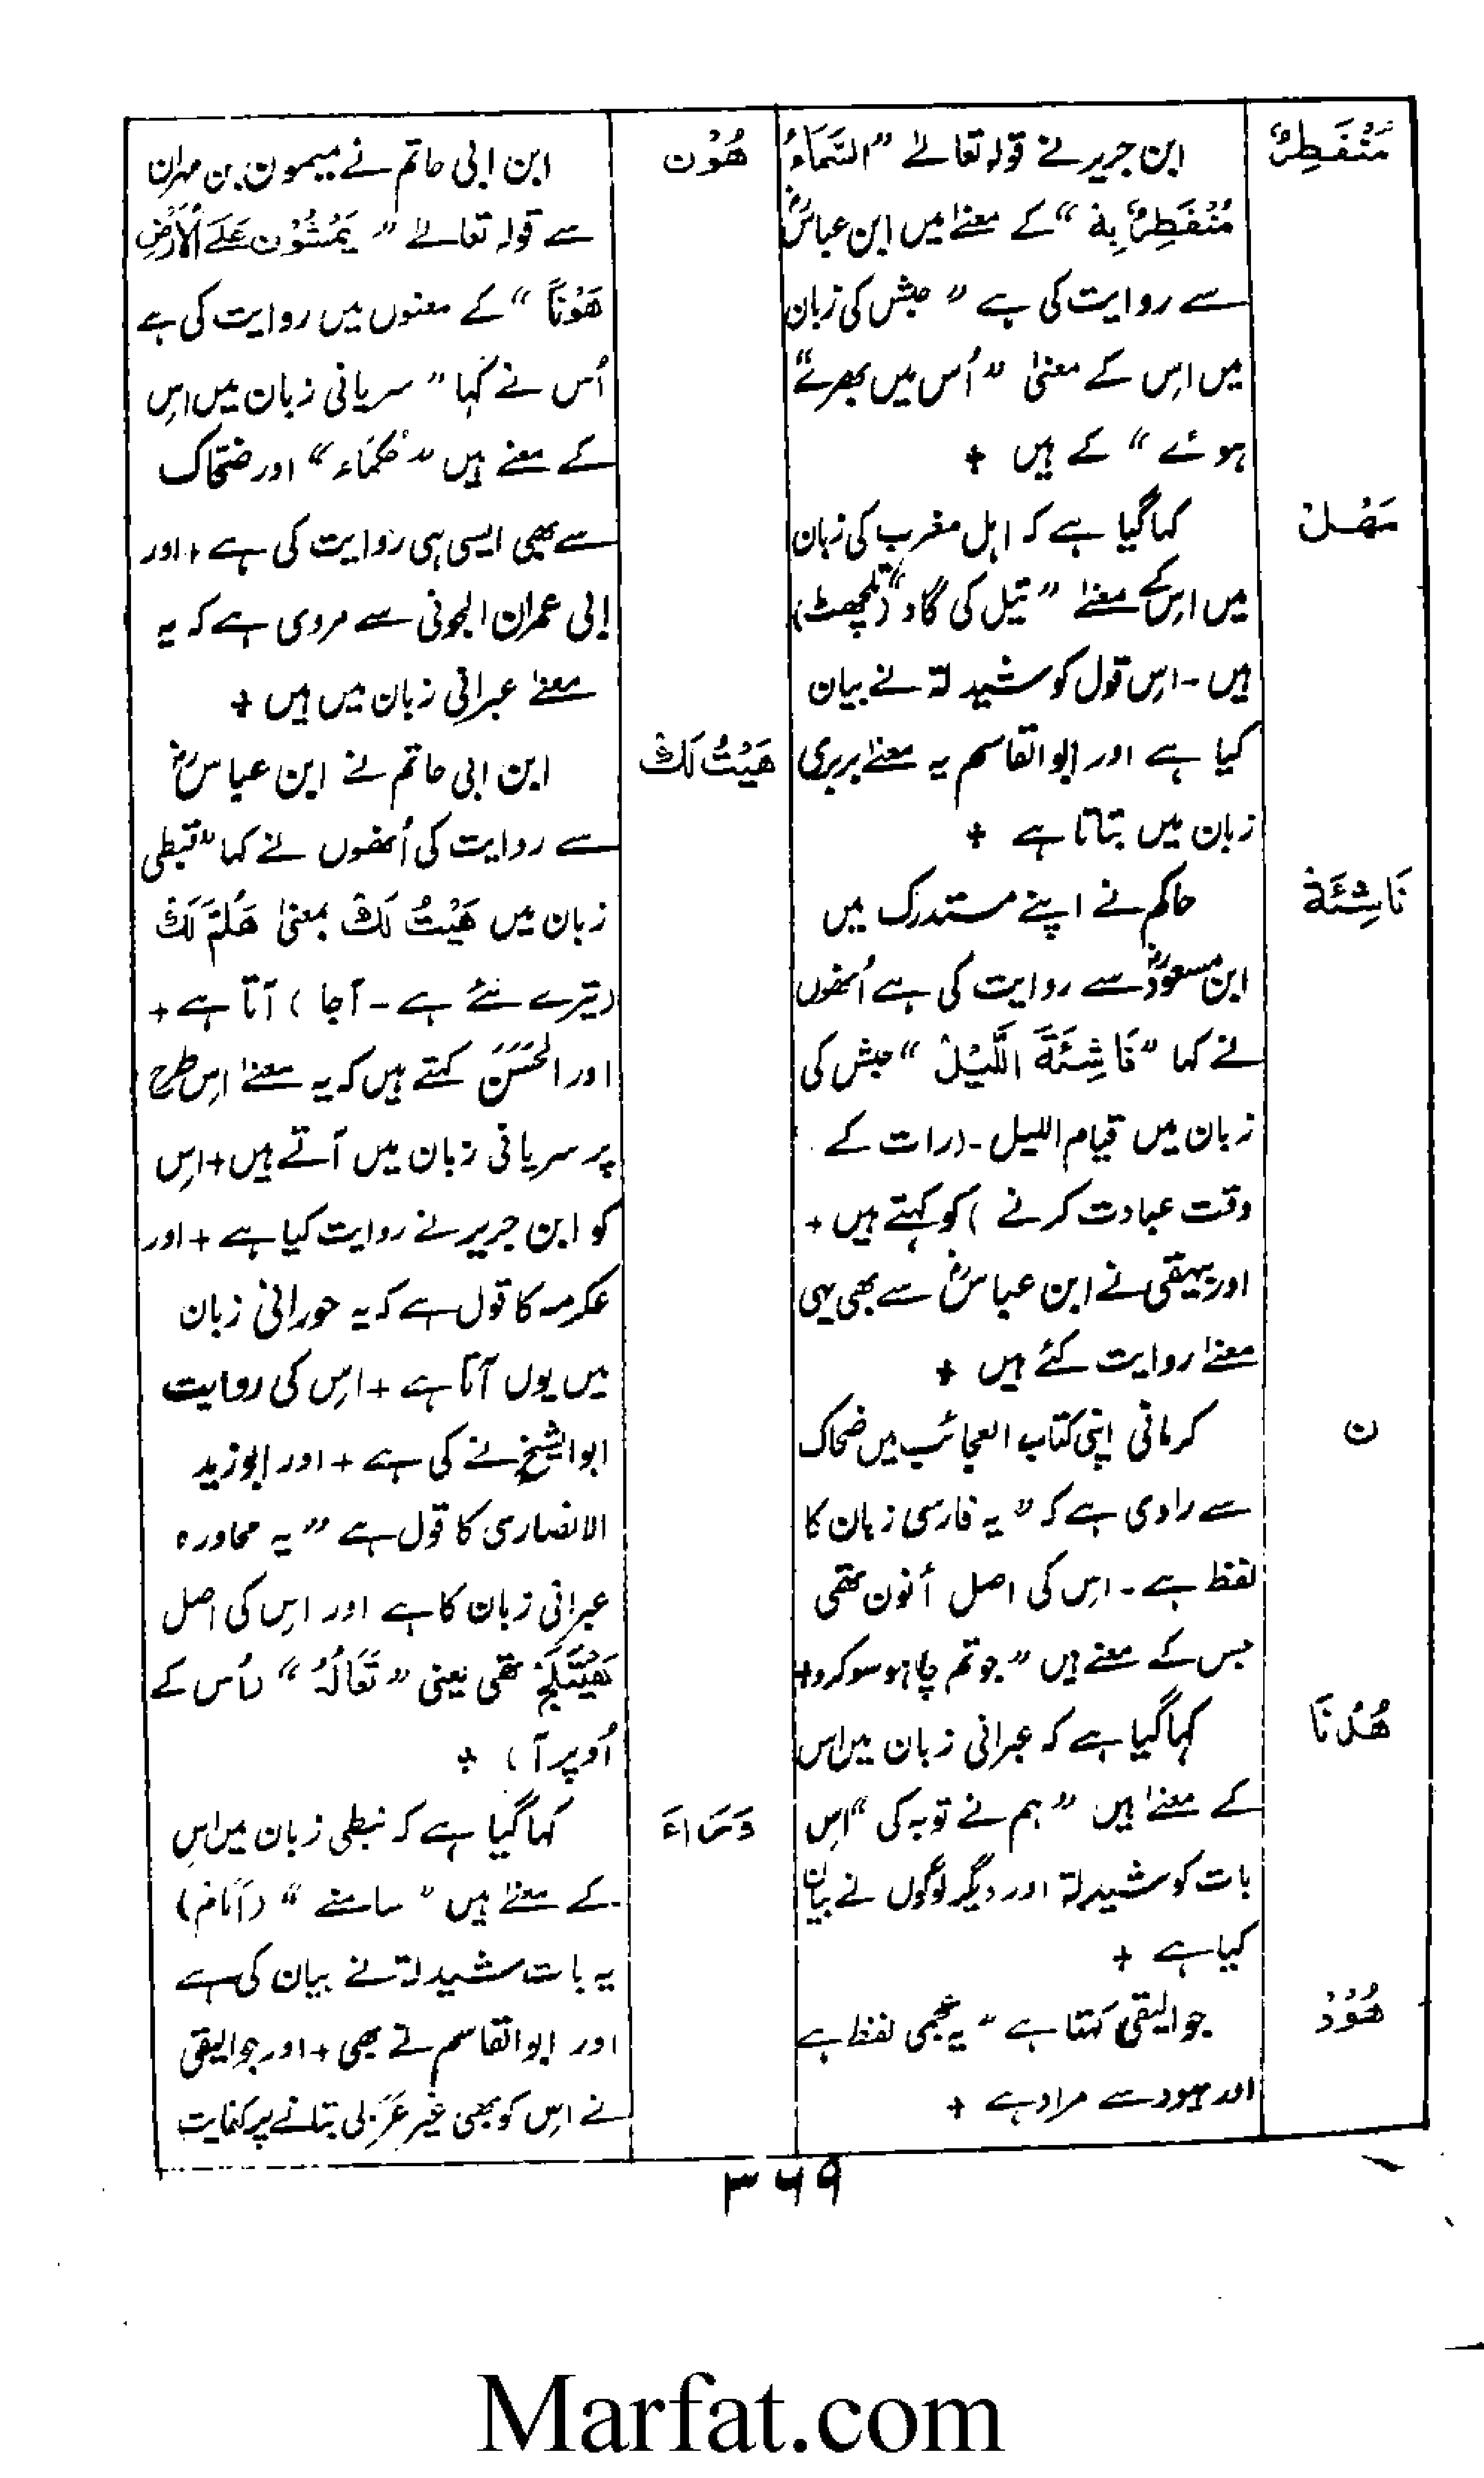 مُنْفَطِرٌ
ابن جریر نے قولہ تعالےٰ "السَّمَاءُ
مُنْفَطِرٌ بِهٖ" کے معنےٰ میں ابن عباسؓ
سے روایت کی ہے "حبش کی زبان
میں اِس کے معنیٰ "اُس میں بھرے
ہوئے" کے ہیں +
مُهْلْ
کہا گیا ہے کہ اہل مغرب کی زبان
میں اِس کے معنےٰ "تیل کی گاد" (تلچھٹ)
ہیں۔ اِس قول کو شیدلۃ نے بیان
کیا ہے اور ابوالقاسم یہ معنےٰ بربری
زبان میں بتاتا ہے +
نَاشِئَةَ
حاکم نے اپنے مستدرک میں
ابن مسعودؓ سے روایت کی ہے اُنھوں
نے کہا "نَاشِئَةَ اللَّیْلْ" حبش کی
زبان میں قیام اللیل۔ (رات کے
وقت عبادت کرنے) کو کہتے ہیں +
اور بیہقی نے ابن عباسؓ سے بھی یہی
معنےٰ روایت کئے ہیں +
ن
کرمانی اپنی کتاب العجائب میں ضحاک
سے راوی ہے کہ "یہ فارسی زبان کا
لفظ ہے۔ اِس کی اصل اُنون تھی
جس کے معنے ہیں "جو تم چاہو سو کرو +
هُدْنَا
کہا گیا ہے کہ عبرانی زبان میں اس
کے معنےٰ ہیں "ہم نے توبہ کی" اِس
بات کو شیدلۃ اور دیگر لوگوں نے بیان
کیا ہے +
هُوْدْ
جوالیقی کہتا ہے "یہ عجمی لفظ ہے
اور یہود سے مراد ہے +
هُوْن
ابن ابی حاتم نے میمون بن مہران
سے قولہ تعالےٰ "یَمْشُوْنَ عَلَے الْاَرْضِ
هَوْنًا" کے معنوں میں روایت کی ہے
اُس نے کہا "سریانی زبان میں اِس
کے معنے ہیں "حُکَمَاء" اور ضحّاک
سے بھی ایسی ہی روایت کی ہے + اور
ابی عمران الجونی سے مروی ہے کہ یہ
معنےٰ عبرانی زبان میں ہیں +
هَیْتُ لَكْ
ابن ابی حاتم نے ابن عباسؓ
سے روایت کی اُنھوں نے کہا "قبطی
زبان میں هَیْتُ لَكْ بمعنیٰ هَلُمَّ لَكْ
(تیرے لئے ہے۔ آجا) آتا ہے +
اور الحَسَنْ کہتے ہیں کہ یہ معنےٰ اِس طرح
پر سریانی زبان میں آتے ہیں + اِس
کو ابن جریر نے روایت کیا ہے + اور
عکرمہ کا قول ہے کہ یہ حورانی زبان
میں یوں آتا ہے + اِس کی روایت
ابوالشیخ نے کی ہے + اور ابوزید
الانصاری کا قول ہے "یہ محاورہ
عبرانی زبان کا ہے اور اِس کی اصل
تھی یعنی "تَعَالَهُ" (اُس کے
اُوپر آ) +
وَرَاءَ
کہا گیا ہے کہ نبطی زبان میں اِس
کے معنےٰ ہیں "سامنے" (اَمَام)
یہ بات شیدلۃ نے بیان کی ہے
اور ابوالقاسم نے بھی + اور جوالیقی
نے اِس کو بھی غیر عَرَبی بتانے پر کفایت
۳۶۹
Marfat.com